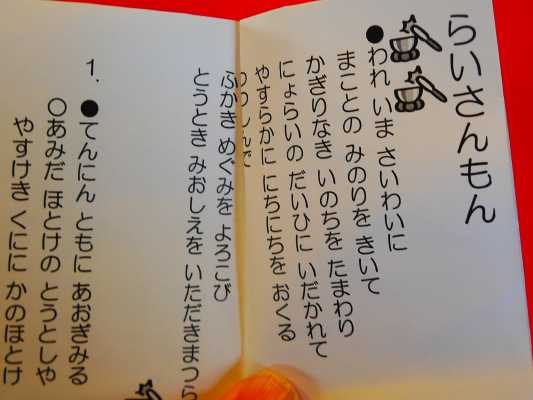 らいさんもん
●われ いま さいわいに
まことの みのりを きいて
かぎりなき いのちを たまわり
にょらいの だいひに いだかれて
やすらかに にちにちを おくる
ふかき めぐみを よろこび
とうとき みおしえを いただきまつら
1. ●てんにん ともに あおぎみる
○あみだ ほとけの とうとしや
やすけき くにに かのほとけ